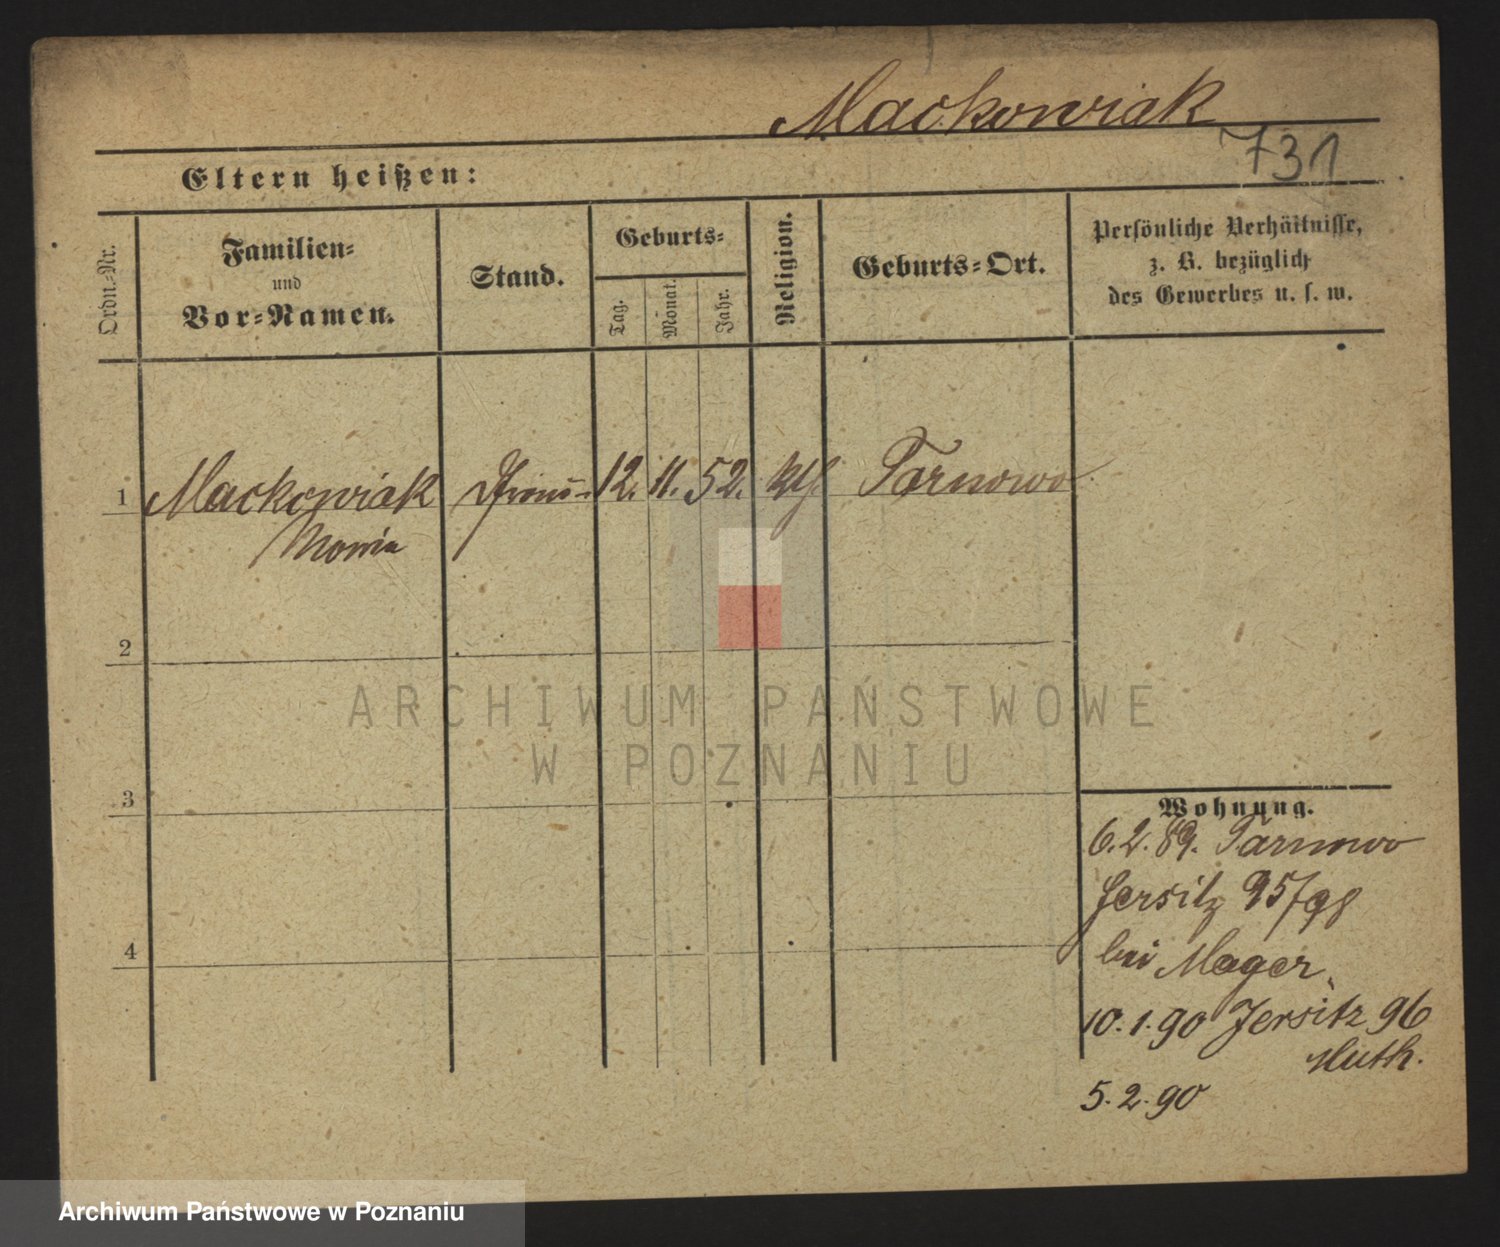 Mackowiak
731
Eltern heißen:
Ordn.-Nr.
Familien-
und
Vor-Namen.
Stand.
Geburts-
Tag.
Monat.
Jahr.
Religion.
Geburts-Ort.
Persönliche Verhältnisse,
z. B. bezüglich
des Gewerbes u. s. w.
1 Mackowiak 12. 11. 52. kth Tarnowo
Maria
2
3
4
ARCHIWUM PAŃSTWOWE
W POZNANIU
Wohnung.
6.2.89. Tarnowo
Jersitz 95/98
bei Mager
10.1.90 Jersitz 96
Muth.
5.2.90
Archiwum Państwowe w Poznaniu